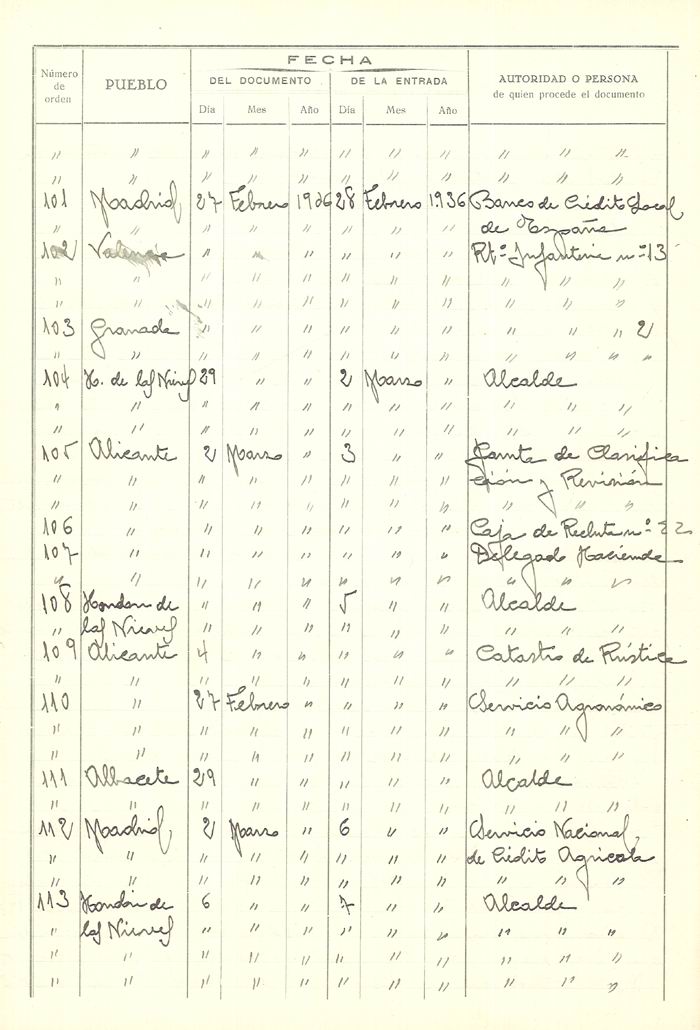 FECHA
Número de orden PUEBLO DEL DOCUMENTO DE LA ENTRADA AUTORIDAD O PERSONA de quien procede el documento
Día Mes Año Día Mes Año
" " " " " " " " " " "
" " " " " " " " " " "
101 Madrid 27 Febrero 1936 28 Febrero 1.936 Banco de Crédito Local
" " " " " " " " de España
102 Valencia " " " " " " Rtº Infanteria nº 13
" " " " " " " " " " "
" " " " " " " " " " "
103 Granada " " " " " " " " " 2
" " " " " " " " " " "
104 H. de las Nieves 29 " " 2 Marzo " Alcalde
" " " " " " " " " " "
" " " " " " " " " " "
105 Alicante 2 Marzo " 3 " " Junta de Clasifica
" " " " " " " " ción y Revisión
" " " " " " " " " " "
106 " " " " " " " Caja de Recluta nº 22
107 " " " " " " " Delegado Hacienda
" " " " " " " " " " "
108 Hondon de " " " 5 " " Alcalde
" las Nieves " " " " " " " " "
109 Alicante 4 " " " " " Catastro de Rústica
" " " " " " " " " " "
110 " 27 Febrero " " " " Servicio Agronómico
" " " " " " " " " " "
" " " " " " " " " " "
111 Albacete 29 " " " " " Alcalde
" " " " " " " " " " "
112 Madrid, 2 Marzo " 6 " " Servicio Nacional,
" " " " " " " " de Crédito Agricola
" " " " " " " " " " "
113 Hondon de 6 " " 7 " " Alcalde
" las Nieves " " " " " " " " "
" " " " " " " " " " "
" " " " " " " " " " "